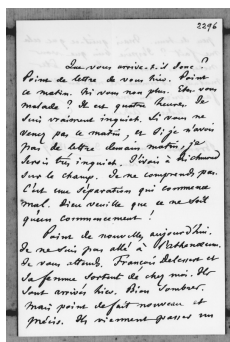 2296
Que vous arrive-t-il donc ?
Point de lettre de vous hier. Point
ce matin. Ni vous non plus. Etes vous
malade ? Il est quatre heures. Je
suis vraiment inquiet. Si vous ne
venez pas ce matin, et si je n'avais
pas de lettre demain matin, je
serois très inquiet. J'irois à Richmond
sur le champ. Je ne comprends pas.
C'est une séparation qui commence
mal. Dieu veuille que ce ne soit
qu'un commencement !
Point de nouvelle aujourd'hui.
Je ne suis pas allé à l'Athenaeum.
Je vous attends. François Delessert et
sa femme sortent de chez moi. Ils
sont arrivés hier. Bien sombres,
mais point de fait nouveau et
précis. Ils viennent passer un